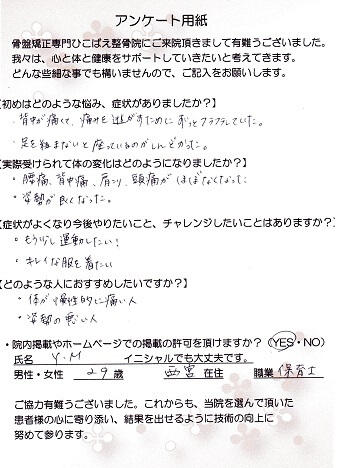 アンケート用紙
骨盤矯正専門ひこばえ整骨院にご来院頂きまして有難うございました。
我々は、心と体と健康をサポートしていきたいと考えてきます。
どんな些細な事でも構いませんので、ご記入をお願いします。
【初めはどのような悩み、症状がありましたか？】
・背中が痛くて、痛みを逃がすために ずっとフラフラしていた。
・足を組まないと座っているのがしんどかった。
【実際受けられて体の変化はどのようになりましたか？】
・腰痛、背中痛、肩こり、頭痛がほぼなくなった
・姿勢が良くなった。
【症状がよくなり今後やりたいこと、チャレンジしたいことはありますか？】
・もう少し運動したい！
・キレイな服を着たい
【どのような人におすすめしたいですか？】
・体が慢性的に痛い人
・姿勢の悪い人
・院内掲載やホームページでの掲載の許可を頂けますか？ (YES・NO)
氏名 Y.M イニシャルでも大丈夫です。
男性・女性 29歳 西宮 在住 職業 保育士
ご協力有難うございました。これからも、当院を選んで頂いた
患者様の心に寄り添い、結果を出せるように技術の向上に
努めて参ります。